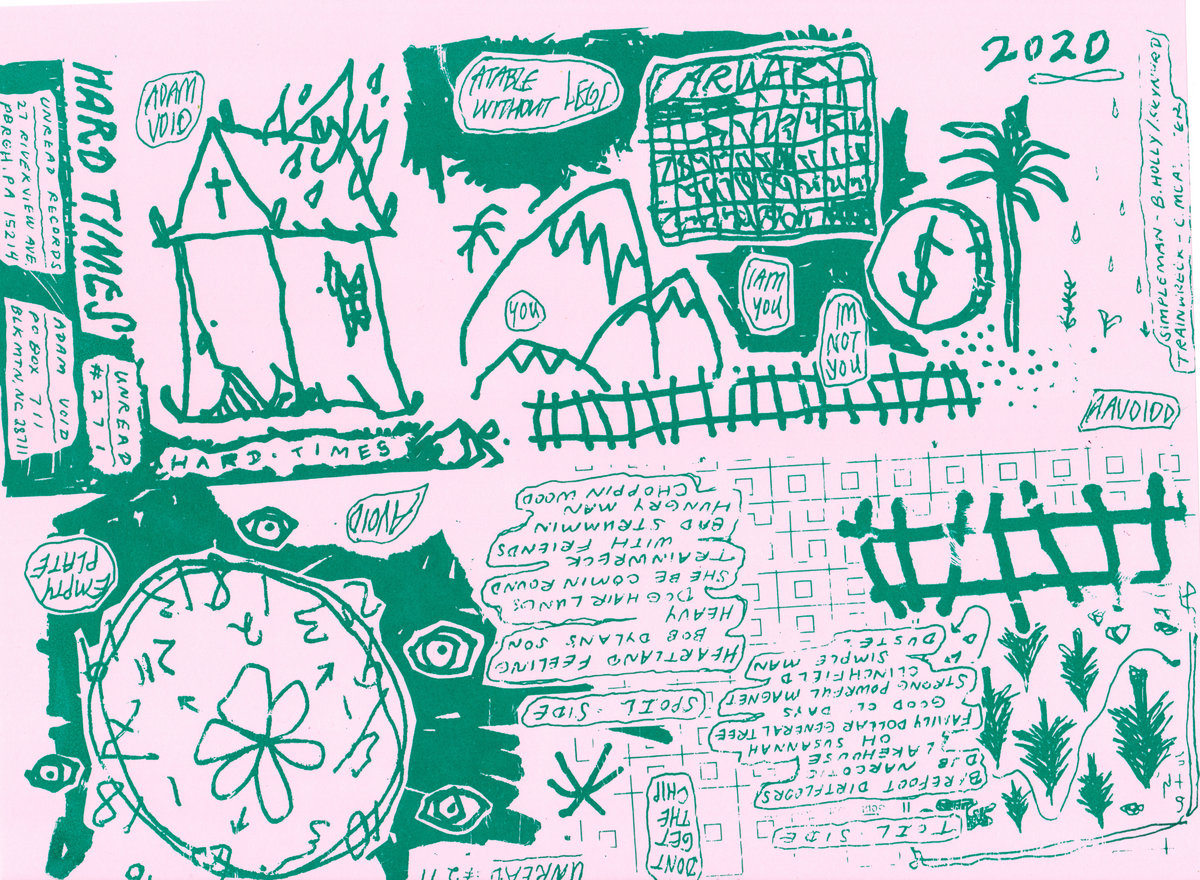 HARD TIMES
UNREAD RECORDS
27 RIVERVIEW AVE.
PBRGH. PA 15214
ADAM VOID
PO BOX 711
BLK MTN, NC 28711
UNREAD
#271
ADAM
VOID
HARD·TIMES
ATABLE
WITHOUT LEGS
YOU
I AM
YOU
IM
NOT
YOU
$
2020
SIMPLE MAN - B. HOLLY /
TRAINWRECK -
AAVOIDD
EMPTY
PLATE
AVOID
SPOIL·SIDE
HEARTLAND FEELING
BOB DYLAN'S SON
HEAVY
DOG HAIR LUNGS
SHE BE COMIN ROUND
TRAINWRECK
WITH FRIENDS
BAD STRUMMIN
HUNGRY MAN
CHOPPIN WOOD
TOIL·SIDE
BIREFOOT DIRTFLOORS
NARCOTIC
LAKEHOUSE
OH SUSANNAH
FAMILY DOLLAR GENERAL TREE
GOOD OL' DAYS
STRONG POWRFUL MAGNET
CLINCHFIELD
SIMPLE MAN
DONT
GET
THE
CHIP
UNREAD #271